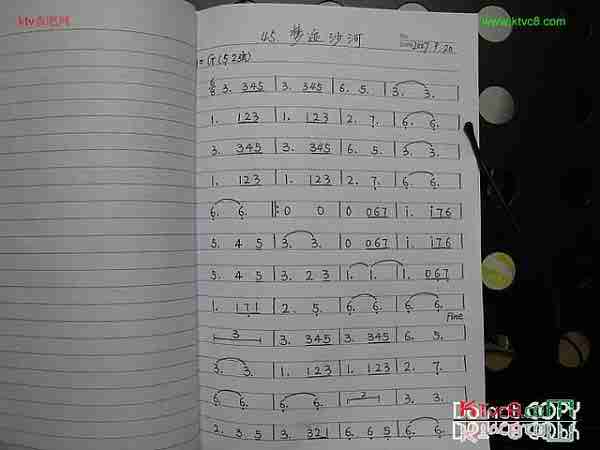 45. 梦追沙河
No.
Date 2007. 9. 20
1= G (5 2弦)
6/8 3. 345 | 3. 345 | 6. 5. | 3. 3. |
1. 123 | 1. 123 | 2. 7. | 6. 6. |
3. 345 | 3. 345 | 6. 5. | 3. 3. |
1. 123 | 1. 123 | 2. 7. | 6. 6. |
6. 6. ‖: 0 0 | 0 067 | 1. 176 |
5. 4 5 | 3. 3. | 0 067 | 1. 176 |
5. 4 5 | 3. 2 3 | 1. 1. | 1. 067 |
1. 171 | 2. 5. | 6. 6. | 6. 6. |
Fine
3 | 3. 345 | 3. 345 | 6. 5. |
3. 3. | 1. 123 | 1. 123 | 2. 7. |
6. 6. | 6. 6. | 2 | 3. 3. |
2. 3 5 | 3. 321 | 6. 6 5 | 6. 6. |
www.ktvc8.com
Ktvc8.com
DO NOT COPY